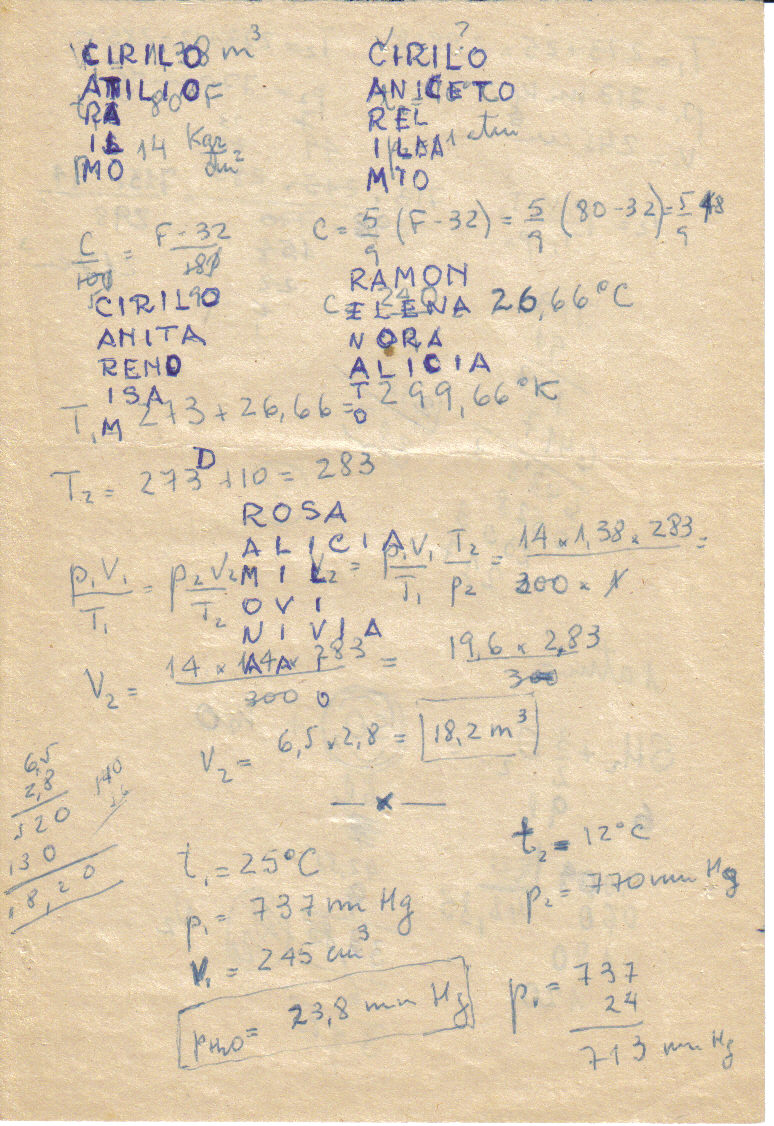 CIRILO
ATILIO
RA
IL
MO
CIRILO
ANICETO
REL
ILMA
MTO
1,38 m³
80 F
14 Kgr/dm²
1 atm
C/100 = F-32/180
C = 5/9 (F-32) = 5/9 (80-32) = 5/9 48
C = 240/9 26,66°C
CIRILO
ANITA
RENO
ISA
M
D
RAMON
ELENA
NORA
ALICIA
T
O
T₁ 273 + 26,66 = 299,66°K
T₂ = 273 + 10 = 283
ROSA
ALICIA
MIL
OVI
NIVIA
AAF
O
p₁V₁/T₁ = p₂V₂/T₂
V₂ = p₁V₁/T₁ T₂/p₂ = 14 × 1,38 × 283/300 × 1 =
V₂ = 14 × 1,4 × 283/300 = 19,6 × 2,83/300
V₂ = 6,5 × 2,8 = 18,2 m³
6,5
2,8
520
130
18,20
— x —
t₁ = 25°C
p₁ = 737 mm Hg
V₁ = 245 cm³
pH₂O = 23,8 mm Hg
t₂ = 12°C
p₂ = 770 mm Hg
p₁ = 737
24
713 mm Hg